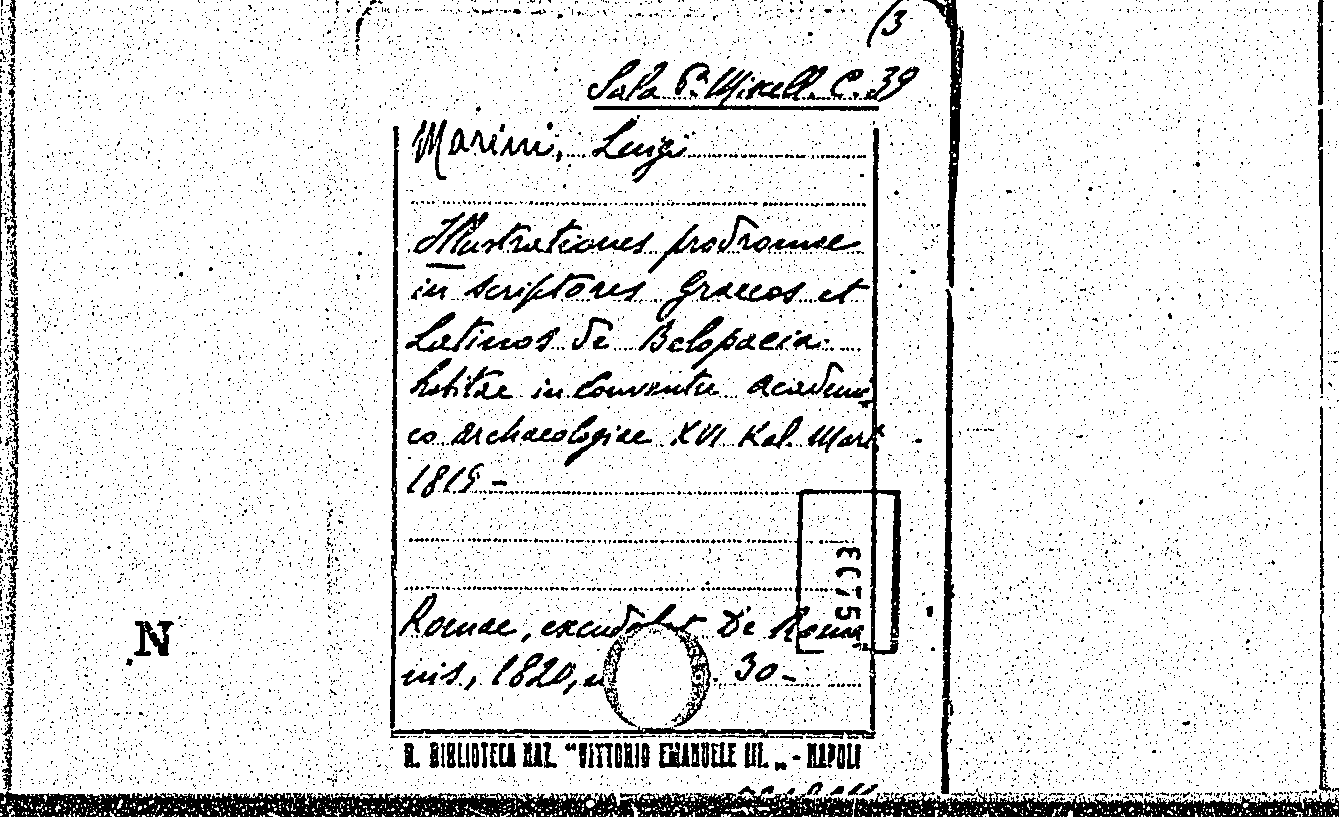 (3
Sala P. Miscell. C. 39
Marini, Luigi
Illustrationes prodromae
in scriptores Graecos et
Latinos de Belopoecia
habitae in conventu academi
co archaeologiae XVI Kal. Mart.
1819 -
Romae, excudebat De Roma
nis, 1820, 30 -
N
R. BIBLIOTECA NAZ. "VITTORIO EMANUELE III. „ - NAPOLI